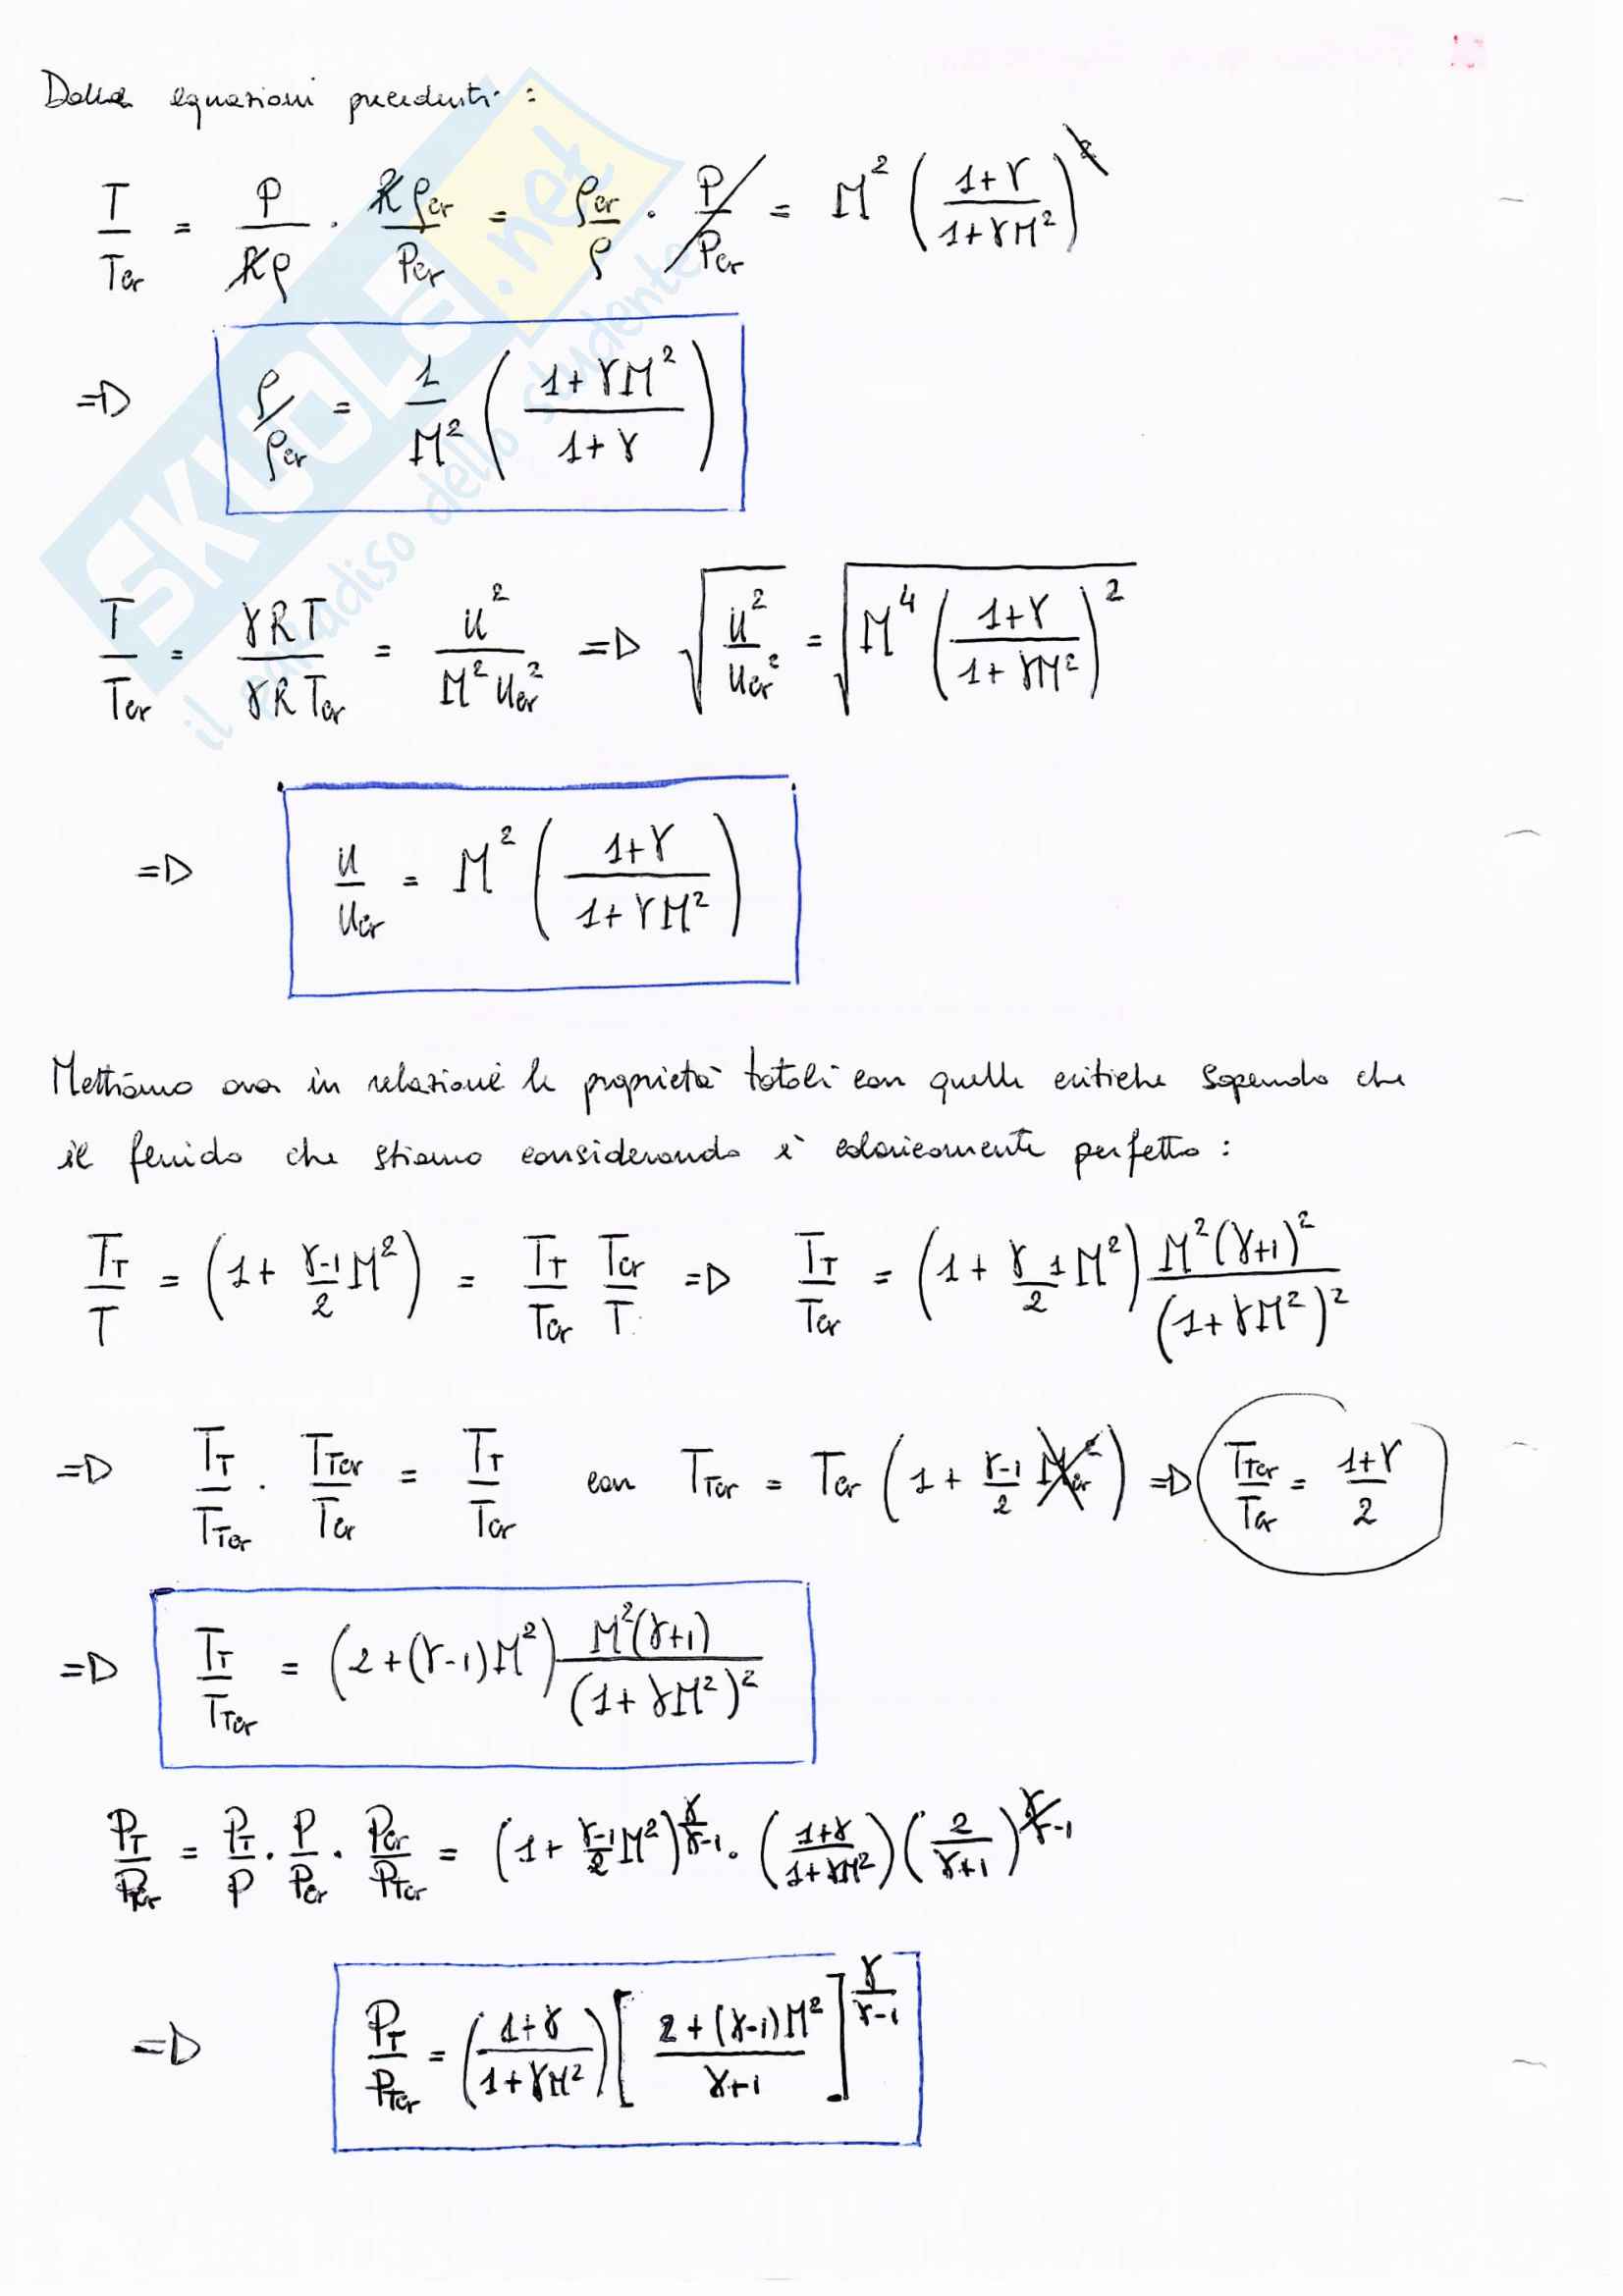 Dalla equazioni precedenti :
T/Tcr = P/(Rρ) · Rρcr/Pcr = ρcr/ρ · P/Pcr = M² ((1+γ)/(1+γM²))²
=D ρ/ρcr = 1/M² ((1+γM²)/(1+γ))
T/Tcr = γRT/(γRTcr) = u²/(M²ucr²) =D √(u²/ucr²) = √(M⁴ ((1+γ)/(1+γM²))²)
=D u/ucr = M² ((1+γ)/(1+γM²))
Mettiamo ora in relazione le proprietà totali con quelle critiche sapendo che
il fluido che stiamo considerando è caloricamente perfetto :
TT/T = (1 + (γ-1)/2 M²) = TT/Tcr Tcr/T =D TT/Tcr = (1 + (γ-1)/2 M²) M²(γ+1)²/(1+γM²)²
=D TT/TTcr · TTcr/Tcr = TT/Tcr con TTcr = Tcr (1 + (γ-1)/2 Mcr²) =D TTcr/Tcr = (1+γ)/2
=D TT/TTcr = (2+(γ-1)M²) M²(γ+1)/(1+γM²)²
PT/PTcr = PT/P · P/Pcr · Pcr/PTcr = (1 + (γ-1)/2 M²)^(γ/(γ-1)) · ((1+γ)/(1+γM²)) (2/(γ+1))^(γ/(γ-1))
=D PT/PTcr = ((1+γ)/(1+γM²)) [(2+(γ-1)M²)/(γ+1)]^(γ/(γ-1))
SKUOLA.net
il paradiso dello studente